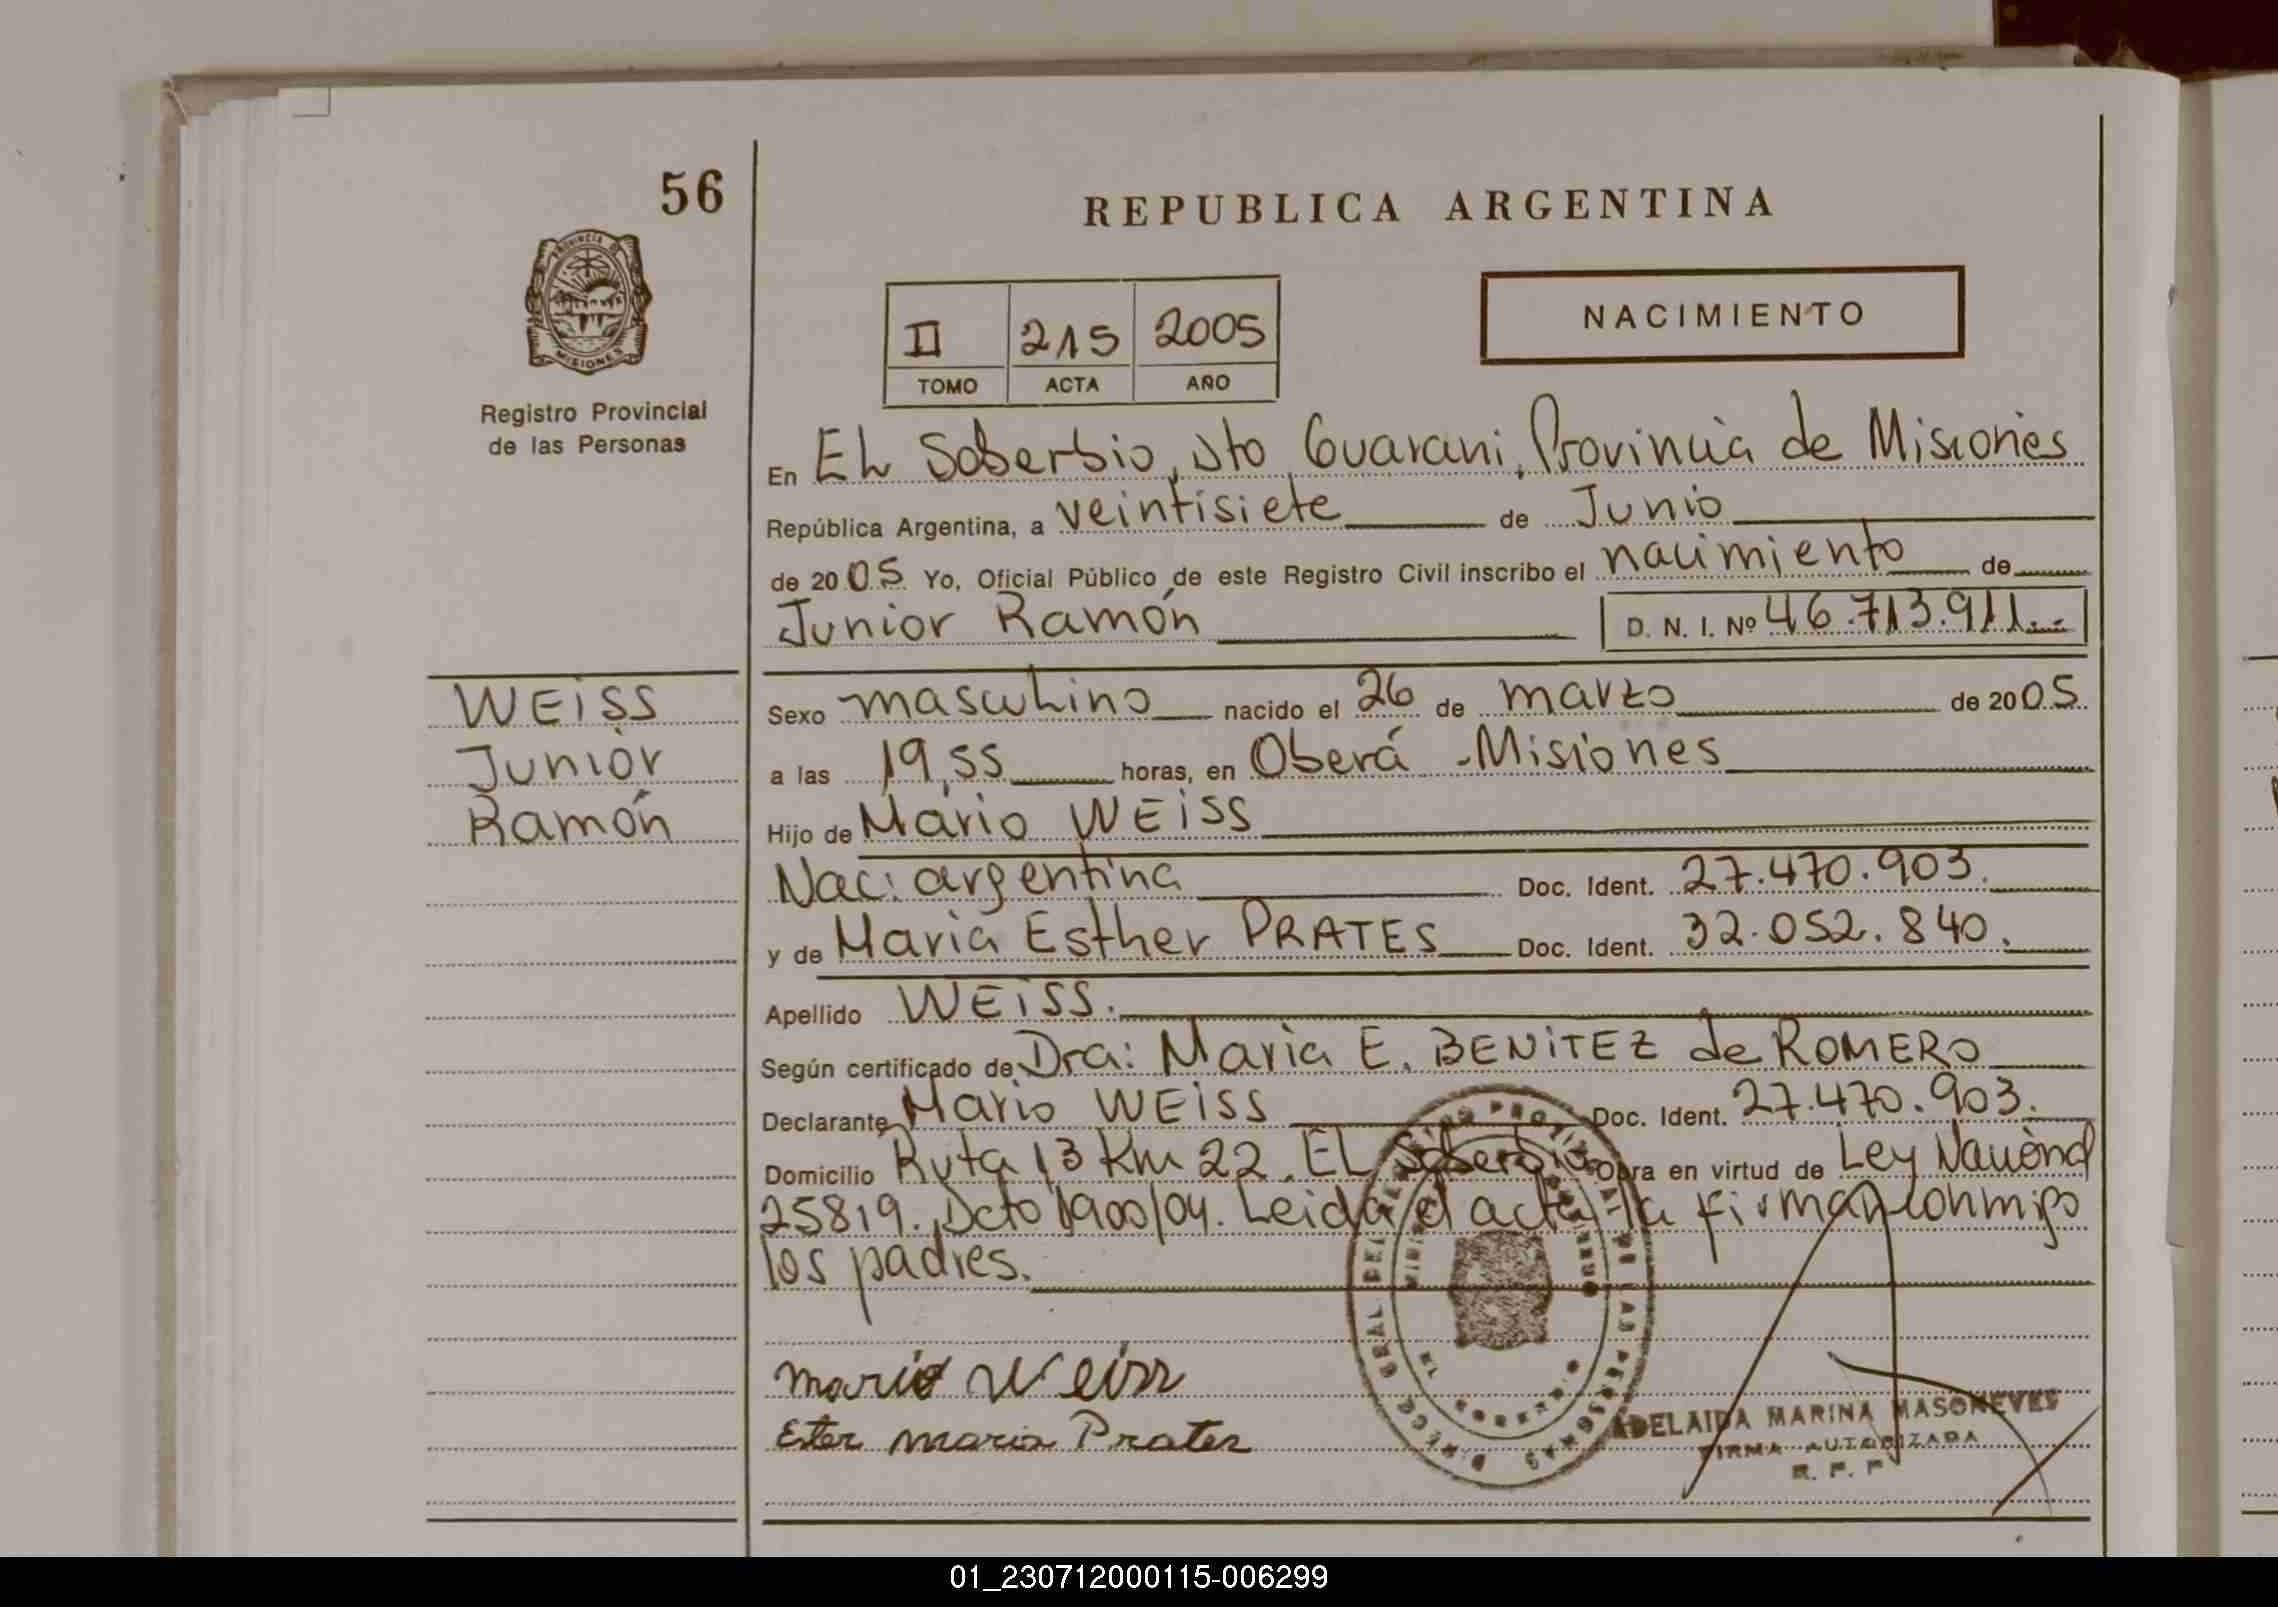 56
REPUBLICA ARGENTINA
PROVINCIA DE
MISIONES
Registro Provincial
de las Personas
II 215 2005
TOMO ACTA AÑO
NACIMIENTO
En EL Soberbio, Dto Guarani, Provincia de Misiones
República Argentina, a veintisiete de Junio
de 2005 Yo, Oficial Público de este Registro Civil inscribo el nacimiento de
Junior Ramón D. N. I. Nº 46.713.911.-
WEiSS
Junior
Ramón
Sexo masculino nacido el 26 de marzo de 2005
a las 19,55 horas, en Oberá - Misiones
Hijo de Mario WEiSS
Nac: argentina Doc. Ident. 27.470.903.
y de Maria Esther PRATES Doc. Ident. 32.052.840.
Apellido WEiSS.
Según certificado de Dra: Maria E. BENiTEZ de ROMERO
Declarante Mario WEiSS Doc. Ident. 27.470.903.
Domicilio Ruta 13 Km 22. EL Soberbio Obra en virtud de Ley Nacional
25819. Dcto 1900/04. Leida el acta la firman conmigo
los padres.
mario Weiss
Ester maria Prates
ADELAIDA MARINA
FIRMA AUTORIZADA
01_230712000115-006299